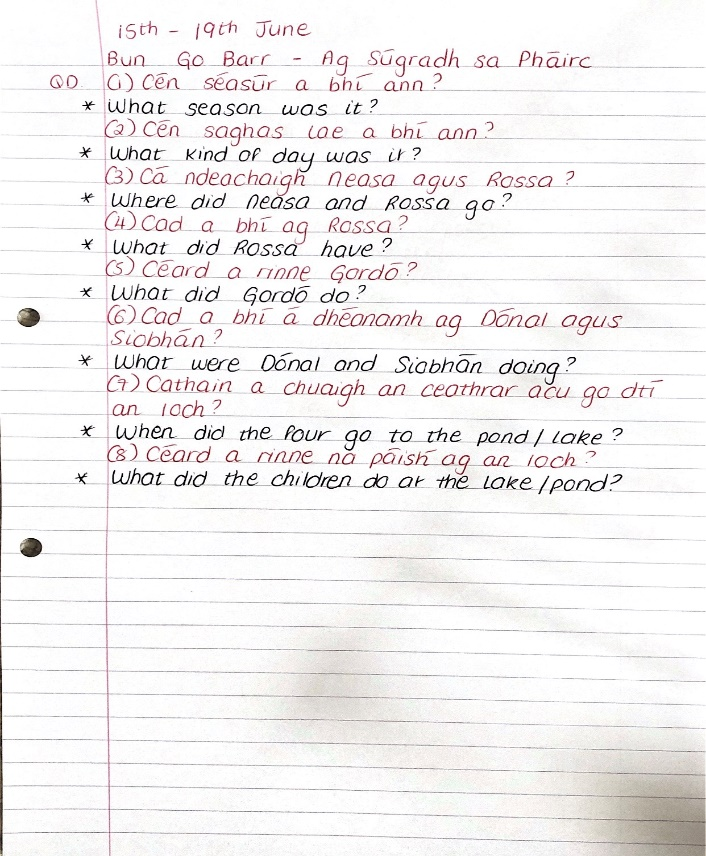 15th - 19th June
Bun Go Barr - Ag Súgradh sa Pháirc
QD. (1) Cén séasúr a bhí ann?
* What season was it?
(2) Cén saghas lae a bhí ann?
* What kind of day was it?
(3) Cá ndeachaigh Neasa agus Rossa?
* Where did Neasa and Rossa go?
(4) Cad a bhí ag Rossa?
* What did Rossa have?
(5) Céard a rinne Gordó?
* What did Gordó do?
(6) Cad a bhí á dhéanamh ag Dónal agus
Siobhán?
* What were Dónal and Siobhán doing?
(7) Cathain a chuaigh an ceathrar acu go dtí
an loch?
* When did the four go to the pond/lake?
(8) Céard a rinne na páistí ag an loch?
* What did the children do at the lake/pond?